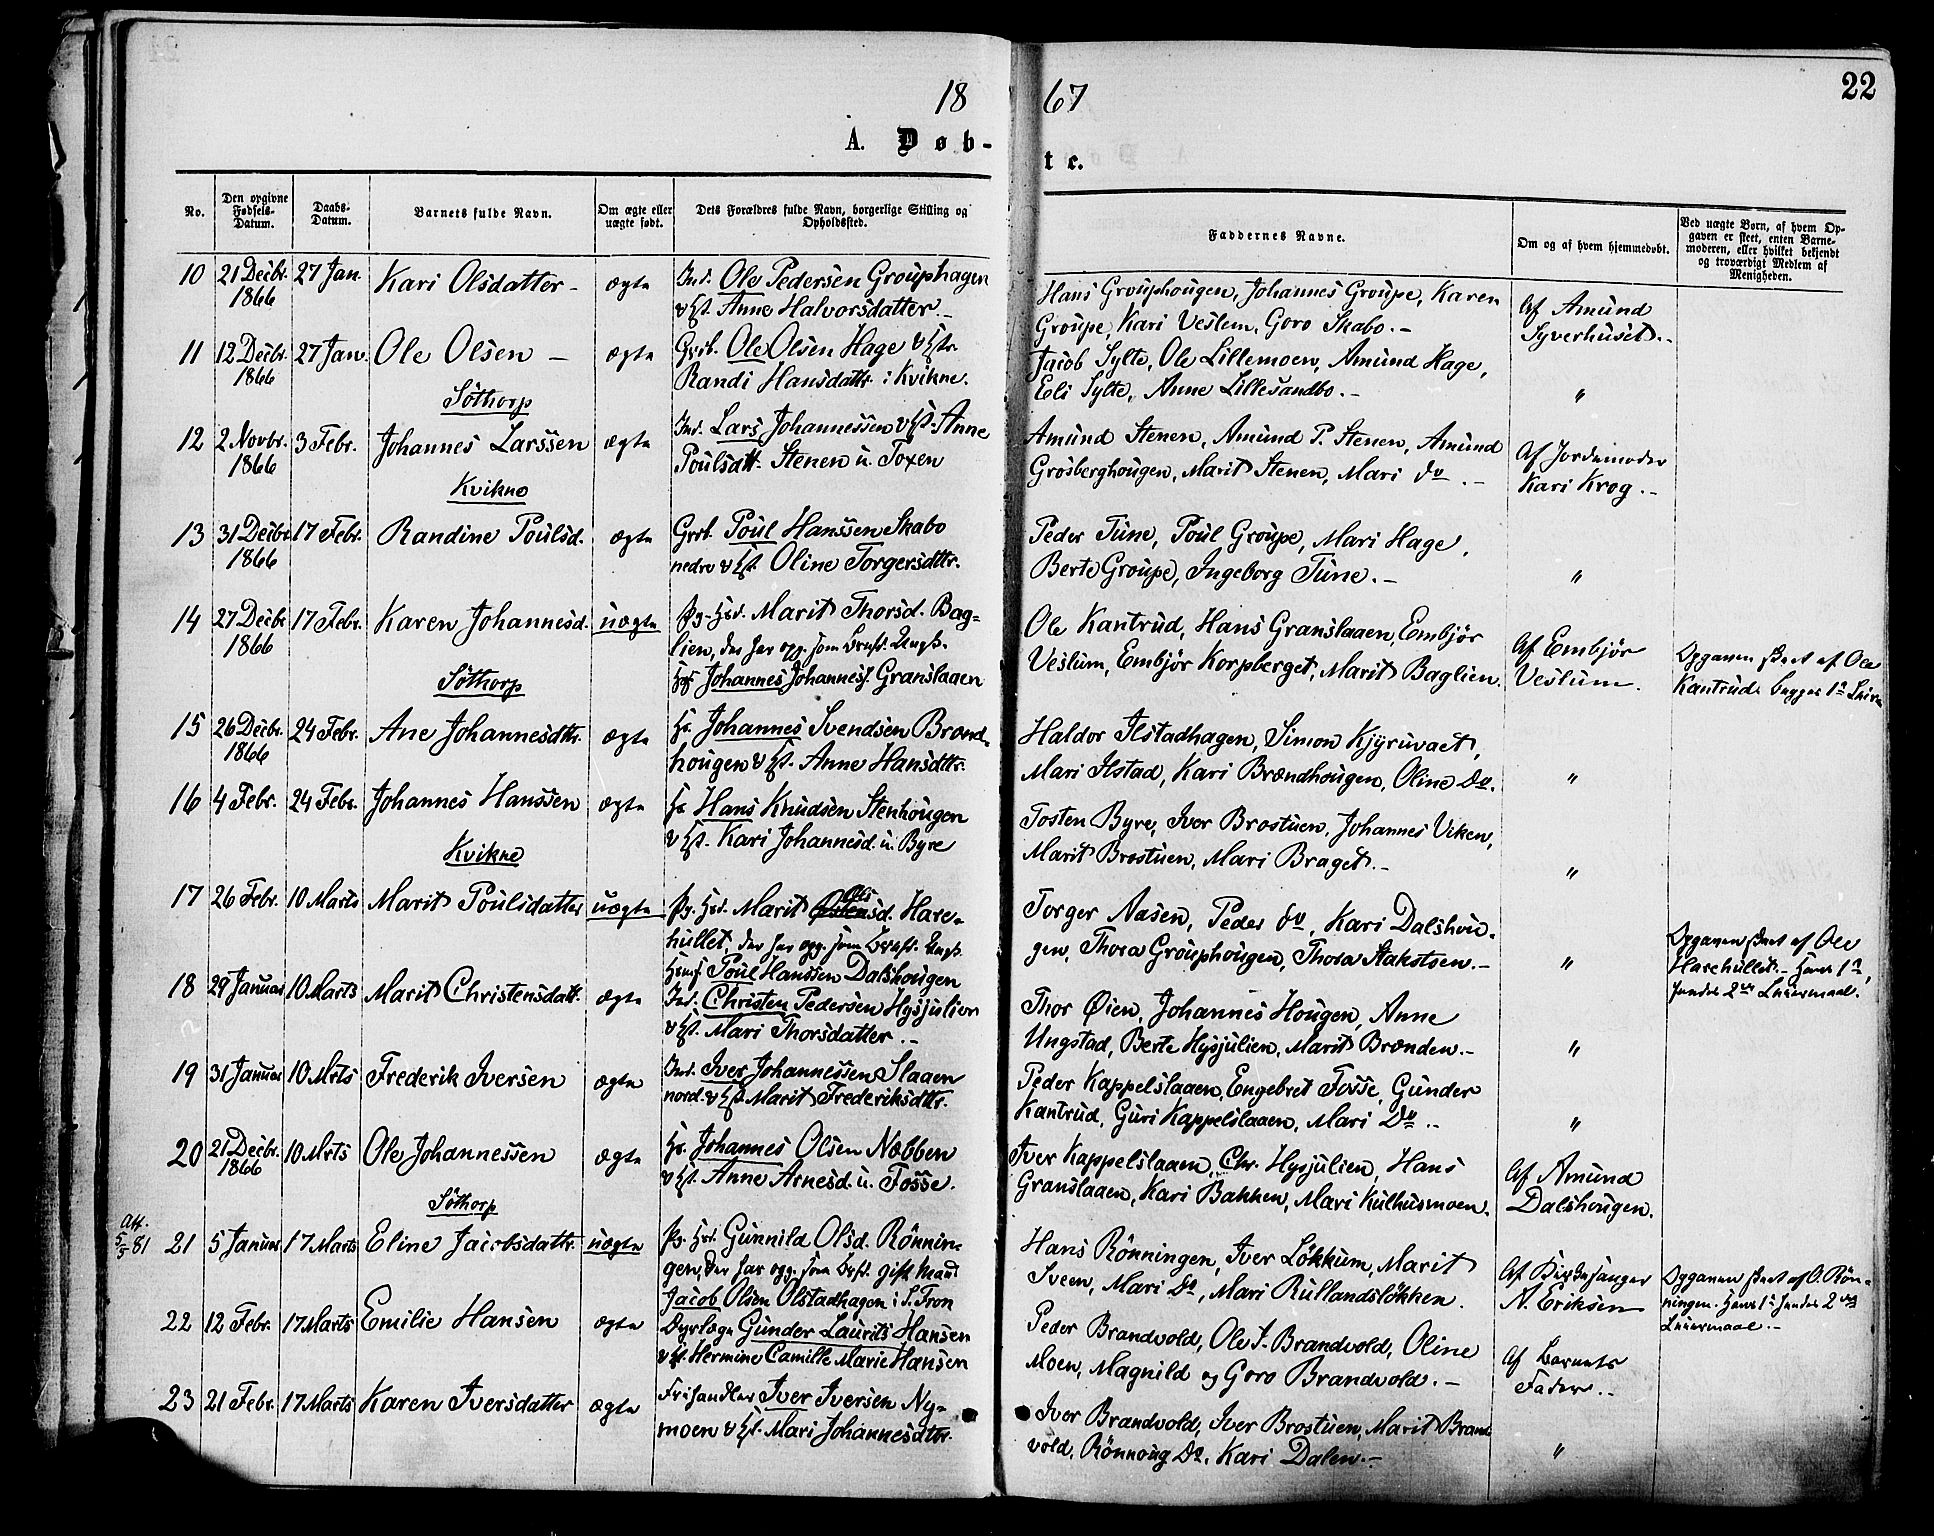 18 67
22
A. Døb- te.
No.
Den opgivne Fødsels-Datum.
Daabs-Datum.
Barnets fulde Navn.
Om ægte eller uægte født.
Dets Forældres fulde Navn, borgerlige Stilling og Opholdssted.
Faddernes Navne.
Om og af hvem hjemmedøbt.
Ved uægte Børn, af hvem Op-
gaven er skeet, enten Barne-
moderen, eller hvilket bekjendt
og troværdigt Medlem af
Menigheden.
10 21 Decbr. 27 Jan. Kari Olsdatter - ægte Ind. Ole Pedersen Grouphagen Hans Grouphougen, Johannes Groupe, Karen Af Amund
1866 Anne Halvorsdatter.- Groupe, Kari Veslem, Goro Skabo.- Syverhuset.-
11 12 Decbr. 27 Jan. Ole Olsen - ægte Grb. Ole Olsen Hage Jacob Sylte, Ole Lillemoen, Amund Hage,
1866 Randi Hansdattr. i Kvikne. Eli Sylte, Anne Lillesandbo.- "
Söthorp
12 2 Novbr. 3 Febr. Johannes Larssen ægte Ind. Lars Johannessen Anne Amund Stenen, Amund P. Stenen, Amund Af Jordemoder
1866 Poulsdtt. Stenen u. Toxen Grosberghougen, Marit Stenen, Mari do.- Kari Krog.-
Kvikne
13 31 Decbr. 17 Febr. Randine Poulsd. ægte Grb. Poul Hanssen Skabo Peder Tune, Poul Groupe, Mari Hage,
1866 nedre Oline Torgersdttr. Berte Groupe, Ingeborg Tune.- "
14 27 Decbr. 17 Febr. Karen Johannesd. uægte Pg. Marit Thorsd. Bag- Ole Kantrud, Hans Granslaaen, Embjör Af Embjör Opgaven skeet af Ole
1866 lien, der har opg. som Barnef. Ungk. Veslum, Embjör Korpberget, Marit Baglien. Veslum. Kantrud. begges 1ste
Johannes Johannes. Granslaaen
Söthorp
15 26 Decbr. 24 Febr. Ane Johannesdttr. ægte Johannes Svendsen Brænd- Haldor Ilstadhagen, Simon Kjyruvaet,
1866 hougen Anne Hansdttr. Mari Ilstad, Kari Brændhougen, Oline Do. "
16 4 Febr. 24 Febr. Johannes Hanssen ægte Hans Knudsen Stenhougen Tosten Byre, Iver Brostuen, Johannes Viken,
Kari Johannesd. u. Byre Marit Brostuen, Mari Braget.- "
Kvikne
17 26 Febr. 10 Marts Marit Poulsdatter uægte Pg. Marit Olsd. Hare- Torger Aasen, Peder do, Kari Dalshou- Opgaven skeet af Ole
hullet, der har opg. som Barnef. Ungk. gen, Thora Grouphougen, Thora Stakstoen.- " Harehullet.- Hans 1ste,
Poul Hanssen Dalshougen hendes 2det Leiermaal.
18 29 Januar 10 Marts Marit Christensdatt. ægte Ind. Christen Pedersen Hysjulien Thor Øien, Johannes Hougen, Anne
Mari Thorsdatter.- Ungstad, Berte Hysjulien, Marit Brænden.- "
19 31 Januar 10 Mrts Frederik Iversen ægte Ind. Iver Johannessen Slaaen Peder Kappelslaaen, Engebret Fosse, Gunder
nord. Marit Frederiksdttr. Kantrud, Guri Kappelslaaen, Mari Do.- "
20 21 Decbr. 10 Mrts Ole Johannessen ægte Johannes Olsen Næbben Iver Kappelslaaen, Chr. Hysjulien, Hans Af Amund
1866 Anne Arnesd. u. Fosse. Granslaaen, Kari Bakken, Mari Kulhusmoen. Dalshougen.
Söthorp
Att. 5/5 81 21 5 Januar 17 Marts Eline Jacobsdattr. uægte Pg. Gunnild Olsd. Rönnin- Hans Rönningen, Iver Lökkum, Marit Af Kirkesanger Opgaven skeet af O. Rön-
gen, der har opg. som Brf. gift Mand Sveen, Mari Do, Mari Rullandslökken. A. Eriksen ningen. Hans 1ste hendes 2det
Jacob Olsen Olstadhagen i S. Fron Leiermaal.-
22 12 Febr. 17 Marts Emilie Hansen ægte Dyrlæge Gunder Laurits Hansen Peder Brandvold, Ole I. Brandvold, Oline Af Barnets
Hermine Camille Marie Hansen Moen, Magnild og Goro Brandvold.- Fader.-
23 21 Febr. 17 Marts Karen Iversdatter ægte Frihandler Iver Iversen Ny- Iver Brandvold, Iver Brostuen, Marit Brand
moen Mari Johannesdttr. vold, Rönnoug Do, Kari Dalen.- "